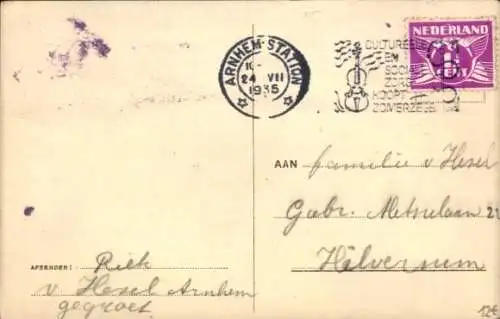 ARNHEM-STATION
24 VII
1935
CULTUREEL
EN
SOCIALE
KOOPT
ZOMERZEGELS
NEDERLAND
AAN familie v Hesel
Gabr. Metsulaan 21
Hilversum
AFZENDER: Riek
v Hesel Arnhem
gegroet
125